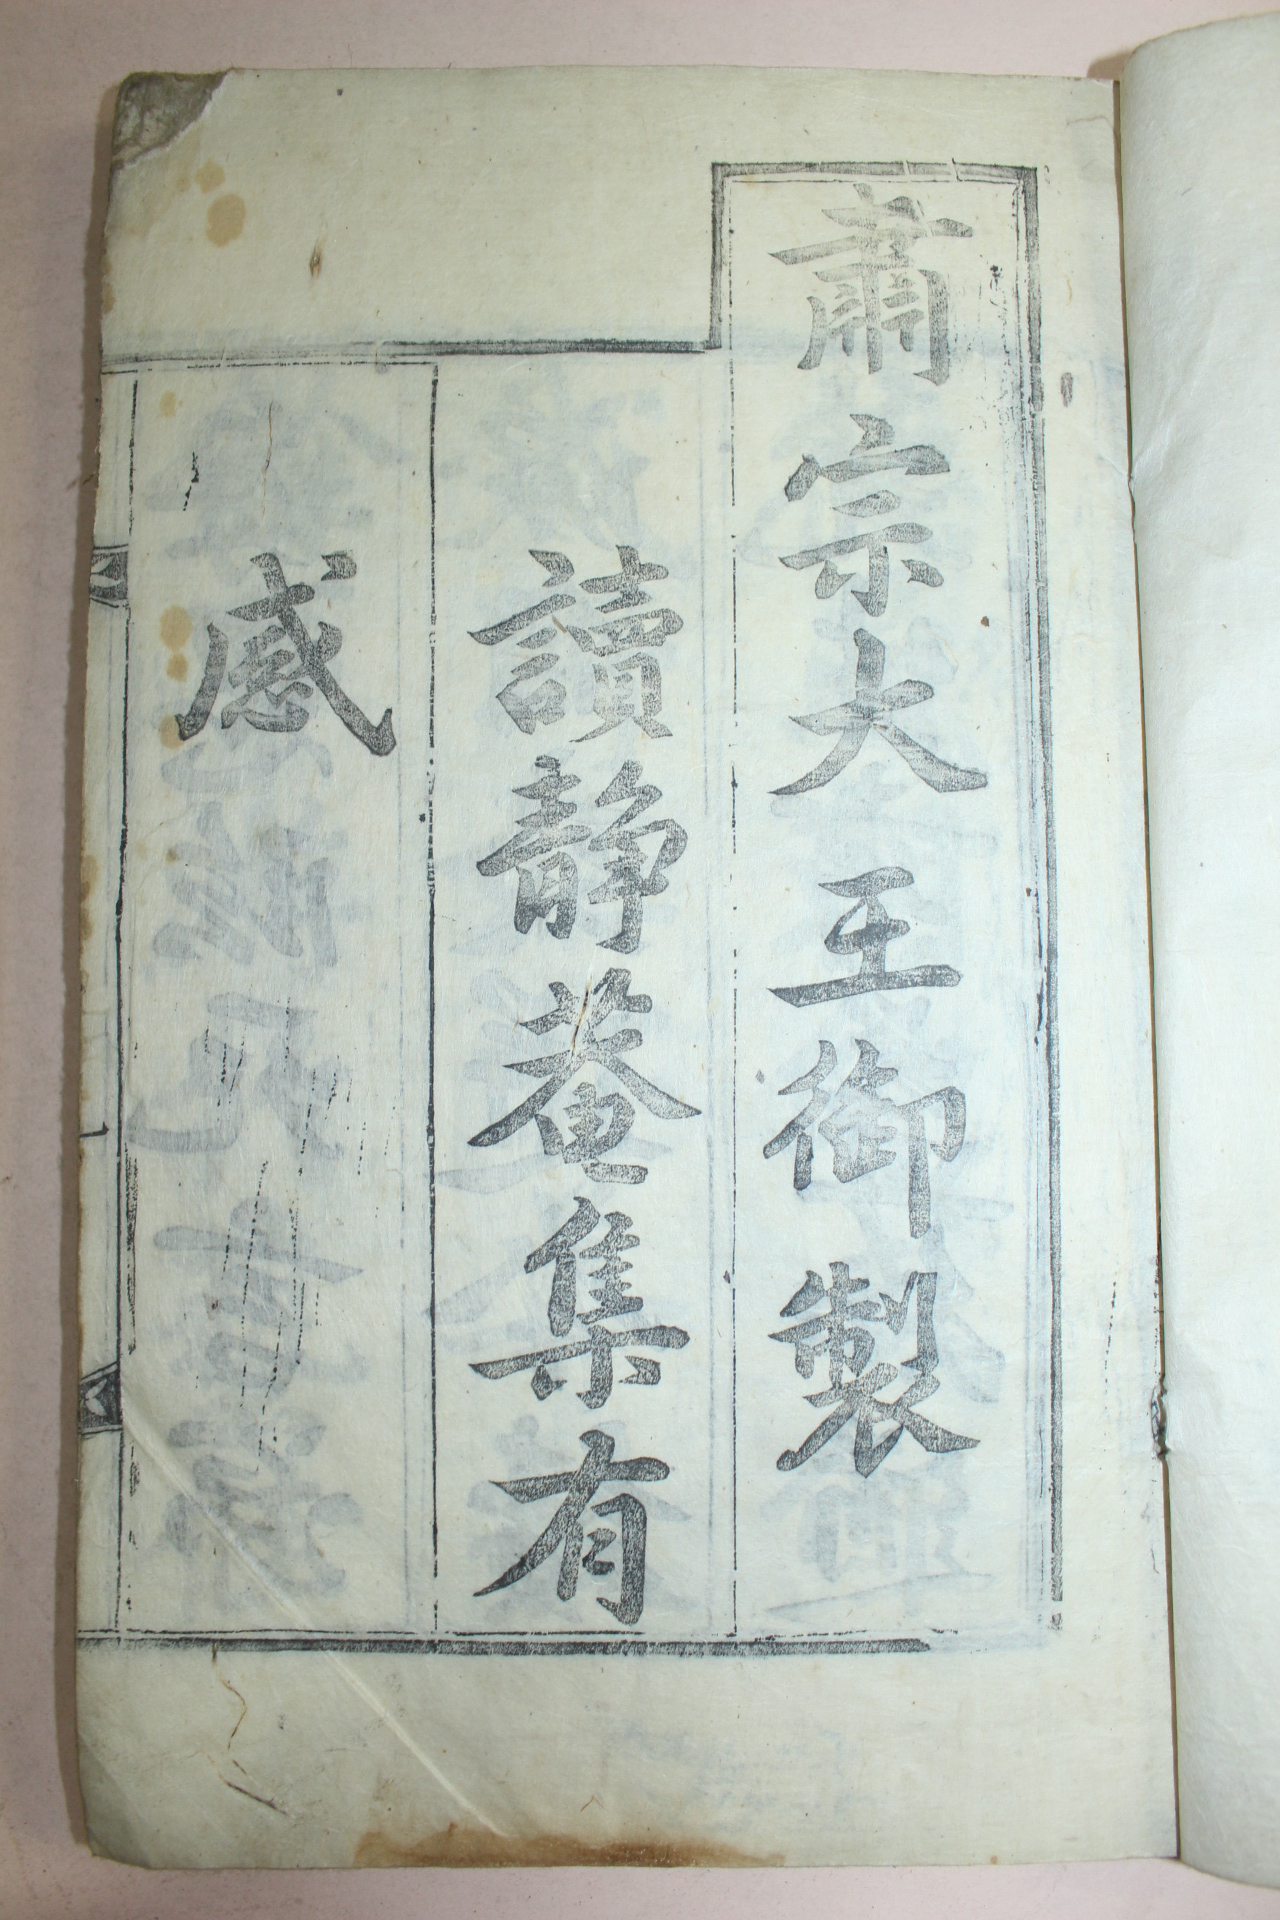 肅宗大王御製
讀靜菴集有
感